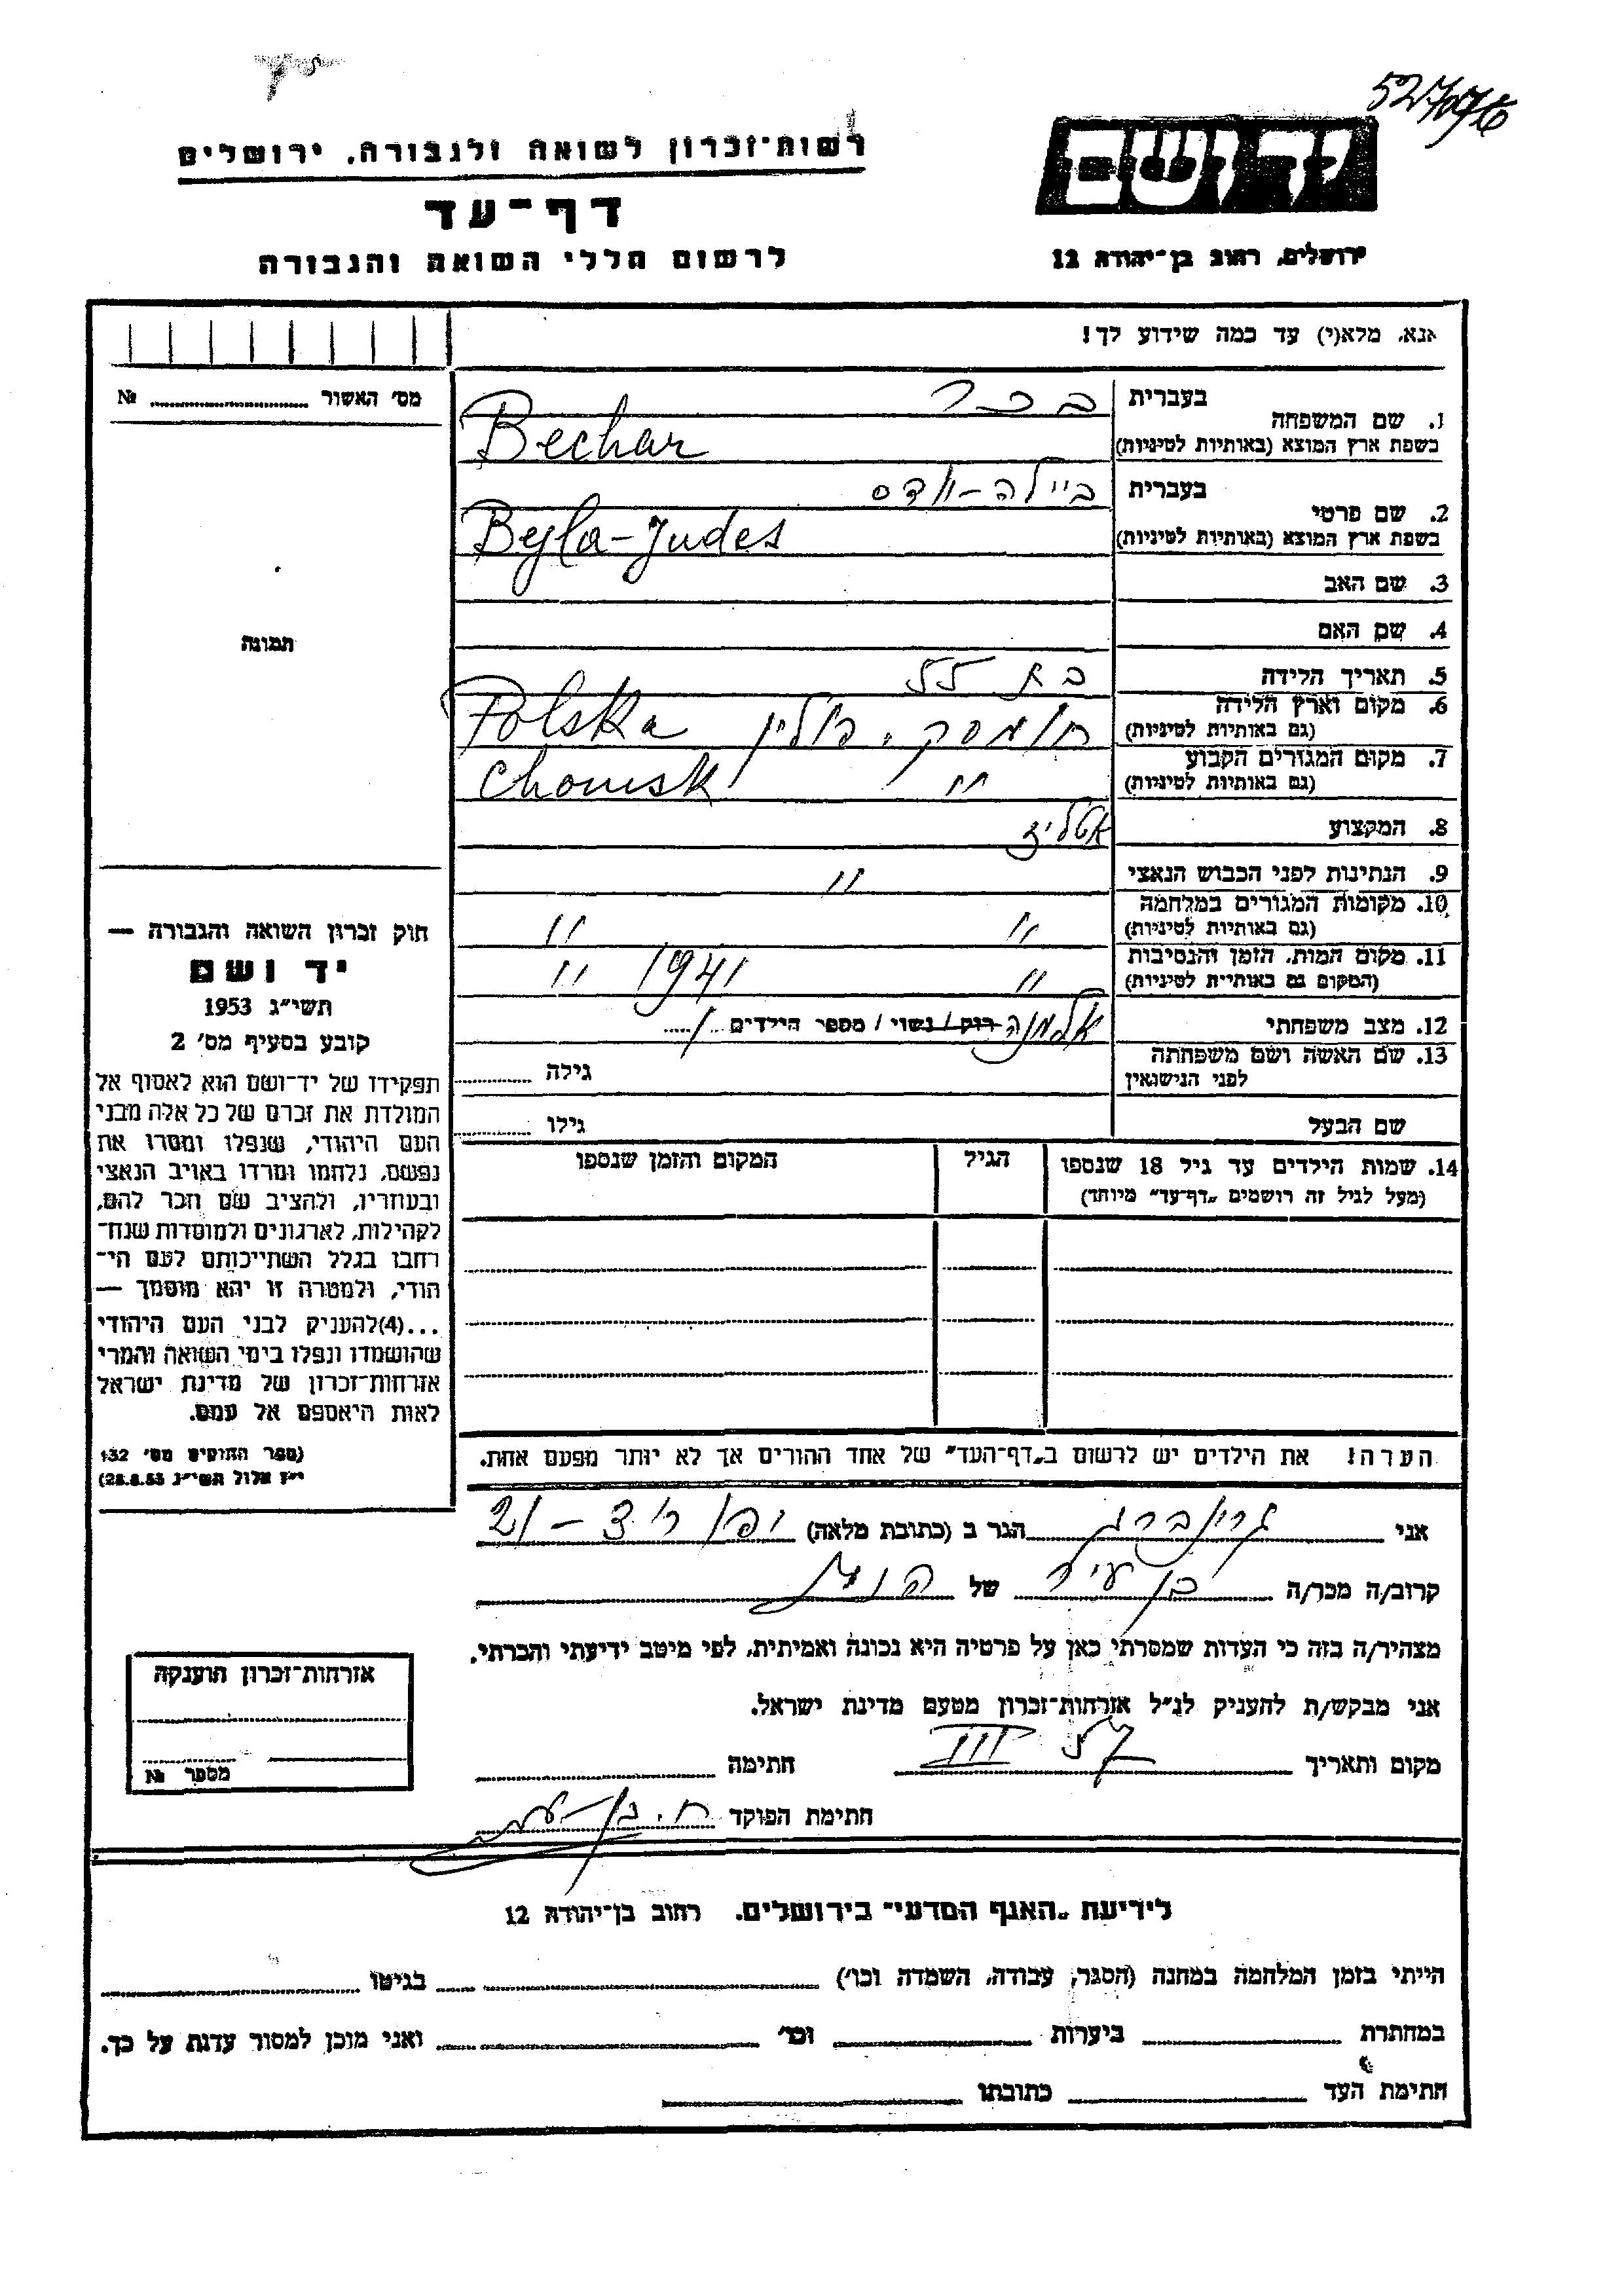 527076
רשות־זכרון לשואה ולגבורה, ירושלים
דף־עד
לרשום חללי השואה והגבורה
יד ושם
ירושלים, רחוב בן־יהודה 12
אנא, מלא(י) עד כמה שידוע לך!
מס' האשור №
תמונה
1. שם המשפחה
בעברית בכר
בשפת ארץ המוצא (באותיות לטיניות) Bechar
2. שם פרטי
בעברית ביילה-יודס
בשפת ארץ המוצא (באותיות לטיניות) Bejla-Judes
3. שם האב
4. שם האם
5. תאריך הלידה בת 55
6. מקום וארץ הלידה חומסק, פולין Polska
(גם באותיות לטיניות)
7. מקום המגורים הקבוע " Chomsk
(גם באותיות לטיניות)
8. המקצוע אטליז
9. הנתינות לפני הכבוש הנאצי "
10. מקומות המגורים במלחמה " "
(גם באותיות לטיניות)
11. מקום המות, הזמן והנסיבות " 1941 "
(המקום גם באותיות לטיניות)
12. מצב משפחתי אלמנה רוק / נשוי / מספר הילדים 1
13. שם האשה ושם משפחתה
לפני הנישואין גילה
שם הבעל גילו
14. שמות הילדים עד גיל 18 שנספו הגיל המקום והזמן שנספו
(מעל לגיל זה רושמים „דף־עד" מיוחד)
הערה! את הילדים יש לרשום ב„דף־העד" של אחד ההורים אך לא יותר מפעם אחת.
חוק זכרון השואה והגבורה —
יד ושם
תשי״ג 1953
קובע בסעיף מס' 2
תפקידו של יד־ושם הוא לאסוף אל
המולדת את זכרם של כל אלה מבני
העם היהודי, שנפלו ומסרו את
נפשם, נלחמו ומרדו באויב הנאצי
ובעוזריו, ולהציב שם וזכר להם,
לקהילות, לארגונים ולמוסדות שנח־
רחבו בגלל השתייכותם לעם הי־
הודי, ולמטרה זו יהא מוסמך —
...(4) להעניק לבני העם היהודי
שהושמדו ונפלו בימי השואה והמרי
אזרחות־זכרון של מדינת ישראל
לאות היאספם אל עמם.
(ספר החוקים מס' 132
י״ז אלול תשי״ג 28.8.53)
אני גרינברג הגר ב (כתובת מלאה) יפו ר' 3 – 21
קרוב/ה מכר/ה בן עיר של המת
מצהיר/ה בזה כי העדות שמסרתי כאן על פרטיה היא נכונה ואמיתית, לפי מיטב ידיעתי והכרתי.
אני מבקש/ת להעניק לנ״ל אזרחות־זכרון מטעם מדינת ישראל.
מקום ותאריך III 57 חתימה
חתימת הפוקד
אזרחות־זכרון הוענקה
מספר №
לידיעת „האגף המדעי" בירושלים, רחוב בן־יהודה 12
הייתי בזמן המלחמה במחנה (הסגר, עבודה, השמדה וכו') בגיטו
במחתרת ביערות וכו' ואני מוכן למסור עדות על כך.
חתימת העד כתובתו